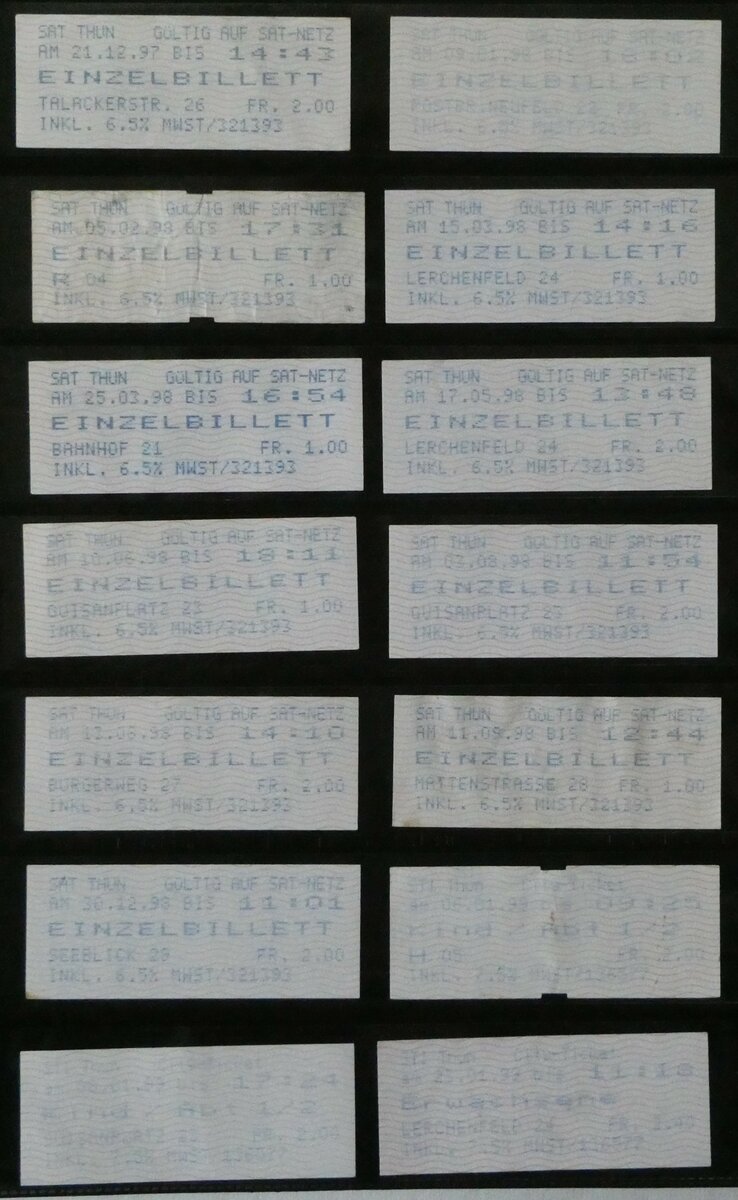 SAT THUN GÜLTIG AUF SAT-NETZ
AM 21.12.97 BIS 14:43
EINZELBILLETT
TALACKERSTR. 26 FR. 2.00
INKL. 6.5% MWST/321393
SAT THUN GÜLTIG AUF SAT-NETZ
AM 09.01.98 BIS 16:02
EINZELBILLETT
INKL. 6.5% MWST/321393
SAT THUN GÜLTIG AUF SAT-NETZ
AM 05.02.98 BIS 17:31
EINZELBILLETT
R 04 FR. 1.00
INKL. 6.5% MWST/321393
SAT THUN GÜLTIG AUF SAT-NETZ
AM 15.03.98 BIS 14:16
EINZELBILLETT
LERCHENFELD 24 FR. 1.00
INKL. 6.5% MWST/321393
SAT THUN GÜLTIG AUF SAT-NETZ
AM 25.03.98 BIS 16:54
EINZELBILLETT
BAHNHOF 21 FR. 1.00
INKL. 6.5% MWST/321393
SAT THUN GÜLTIG AUF SAT-NETZ
AM 17.05.98 BIS 13:48
EINZELBILLETT
LERCHENFELD 24 FR. 2.00
INKL. 6.5% MWST/321393
SAT THUN GÜLTIG AUF SAT-NETZ
AM 10.06.98 BIS 19:11
EINZELBILLETT
GUISANPLATZ 23 FR. 1.00
INKL. 6.5% MWST/321393
SAT THUN GÜLTIG AUF SAT-NETZ
AM 03.08.98 BIS 11:54
EINZELBILLETT
GUISANPLATZ 23 FR. 2.00
INKL. 6.5% MWST/321393
SAT THUN GÜLTIG AUF SAT-NETZ
AM 13.08.98 BIS 14:10
EINZELBILLETT
BURGERWEG 27 FR. 2.00
INKL. 6.5% MWST/321393
SAT THUN GÜLTIG AUF SAT-NETZ
AM 11.09.98 BIS 12:44
EINZELBILLETT
MATTENSTRASSE 28 FR. 1.00
INKL. 6.5% MWST/321393
SAT THUN GÜLTIG AUF SAT-NETZ
AM 30.12.98 BIS 11:01
EINZELBILLETT
SEEBLICK 28 FR. 2.00
INKL. 6.5% MWST/321393
STI Thun City-Ticket
am 06.01.99 bis 09:25
Kind / Abt 1/2
H 05 FR. 2.00
INKL. 7.5% MWST/136577
STI Thun City-Ticket
bis 17:24
Kind / Abt 1/2
GUISANPLATZ 23 FR. 2.00
INKL. 7.5% MWST 136577
STI Thun City-Ticket
bis 11:18
Erwachsene
LERCHENFELD 24 FR.
INKL. 7.5% MWST/136577